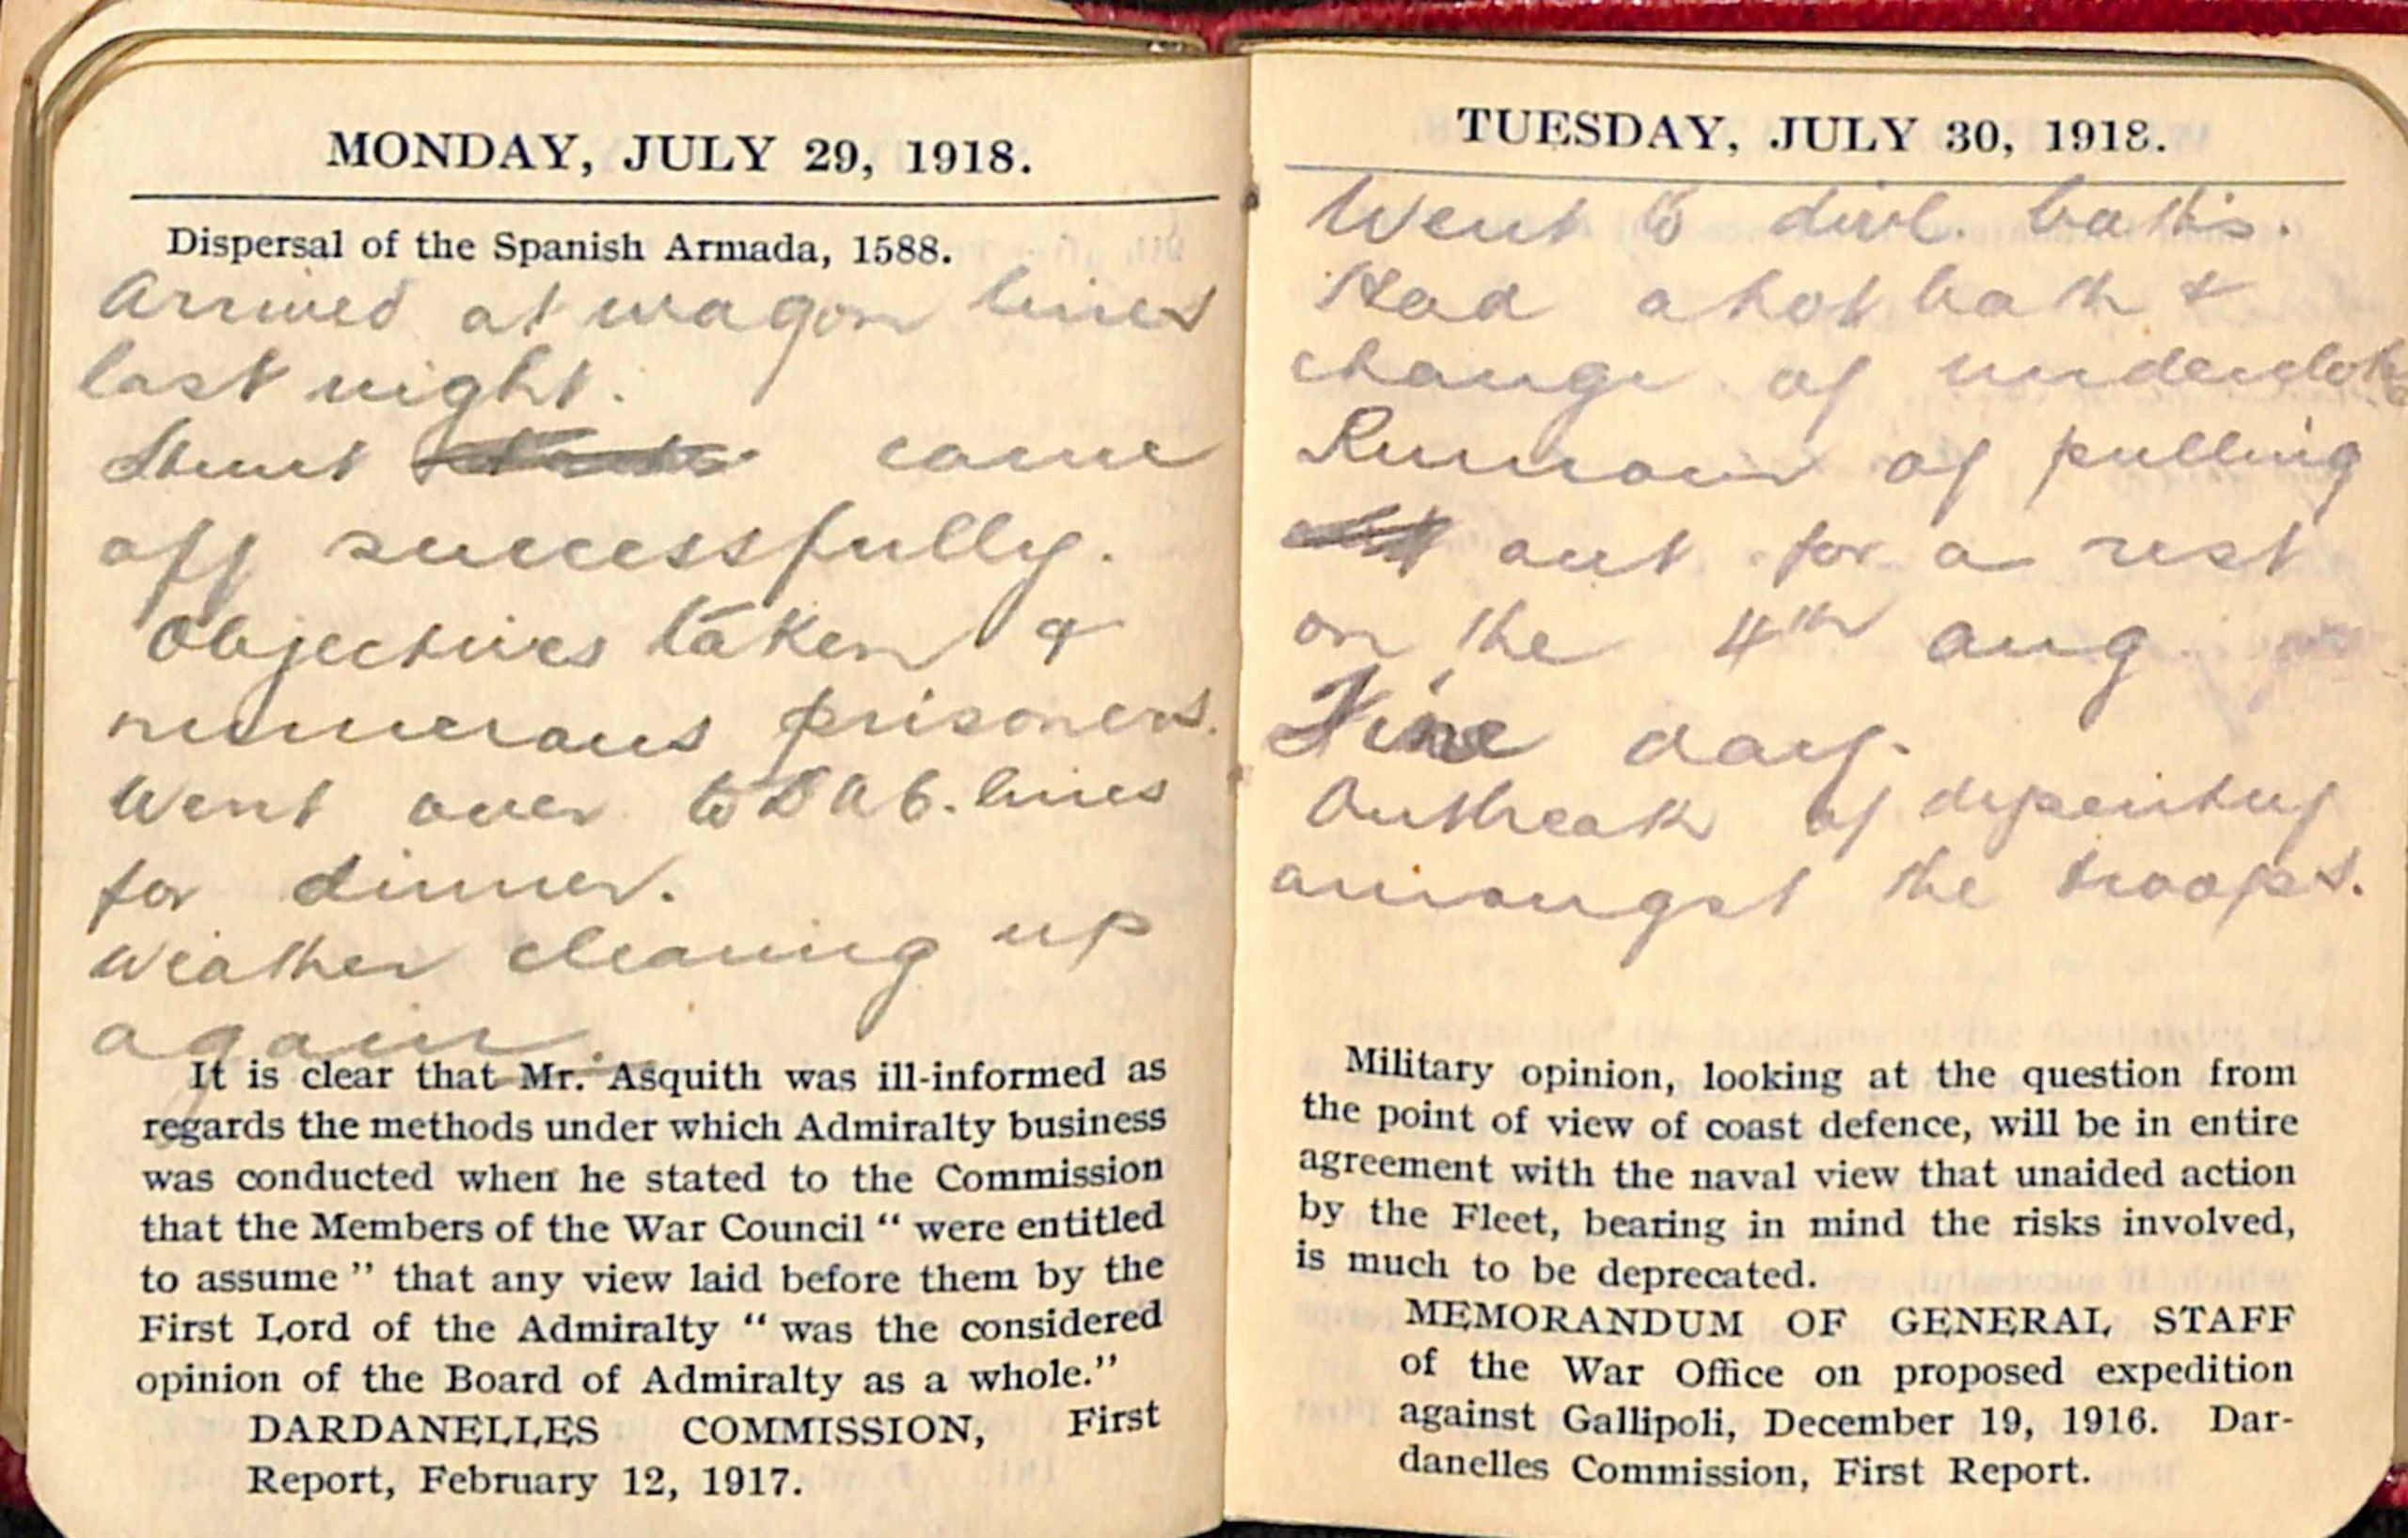 MONDAY, JULY 29, 1918.
Dispersal of the Spanish Armada, 1588.
Arrived at wagon lines
last night.
Stunt came
off successfully.
Objectives taken &
numerous prisoners.
Went over to DAC. lines
for dinner.
Weather clearing up
again.
It is clear that Mr. Asquith was ill-informed as
regards the methods under which Admiralty business
was conducted when he stated to the Commission
that the Members of the War Council “ were entitled
to assume ” that any view laid before them by the
First Lord of the Admiralty “ was the considered
opinion of the Board of Admiralty as a whole.”
DARDANELLES COMMISSION, First
Report, February 12, 1917.
TUESDAY, JULY 30, 1918.
Went to divl. baths.
Had a hot bath &
change of
Rumour of pulling
out for a rest
on the 4th Aug
Fine day.
Outbreak of dysentry
amongst the troops.
Military opinion, looking at the question from
the point of view of coast defence, will be in entire
agreement with the naval view that unaided action
by the Fleet, bearing in mind the risks involved,
is much to be deprecated.
MEMORANDUM OF GENERAL STAFF
of the War Office on proposed expedition
against Gallipoli, December 19, 1916. Dar-
danelles Commission, First Report.